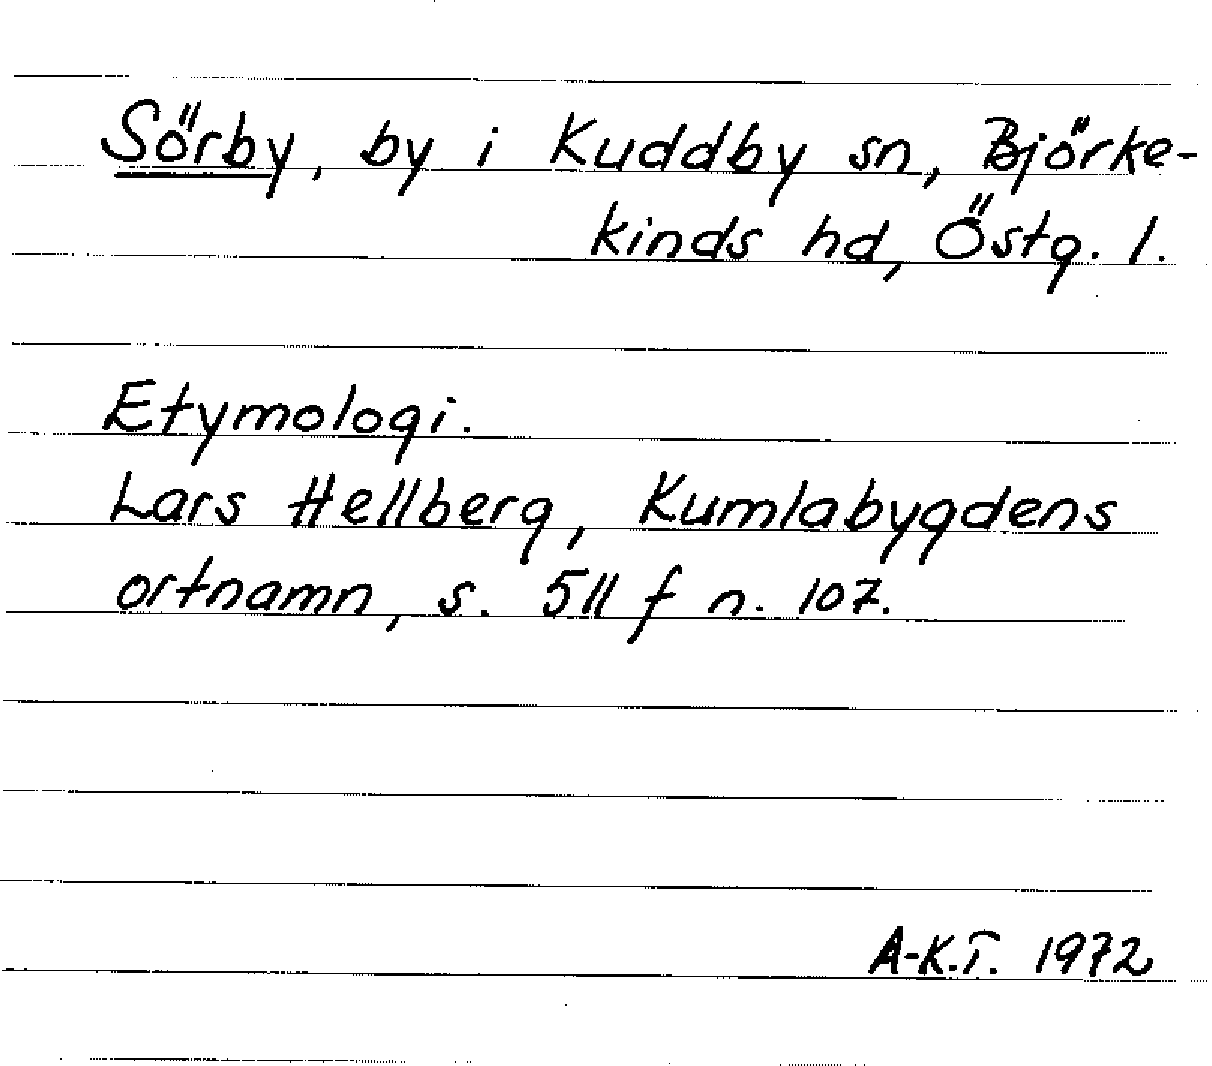 Sörby, by i Kuddby sn, Björke-
kinds hd, Östg. l.
Etymologi.
Lars Hellberg, Kumlabygdens
ortnamn, s. 511 f n. 107.
A-K.T. 1972